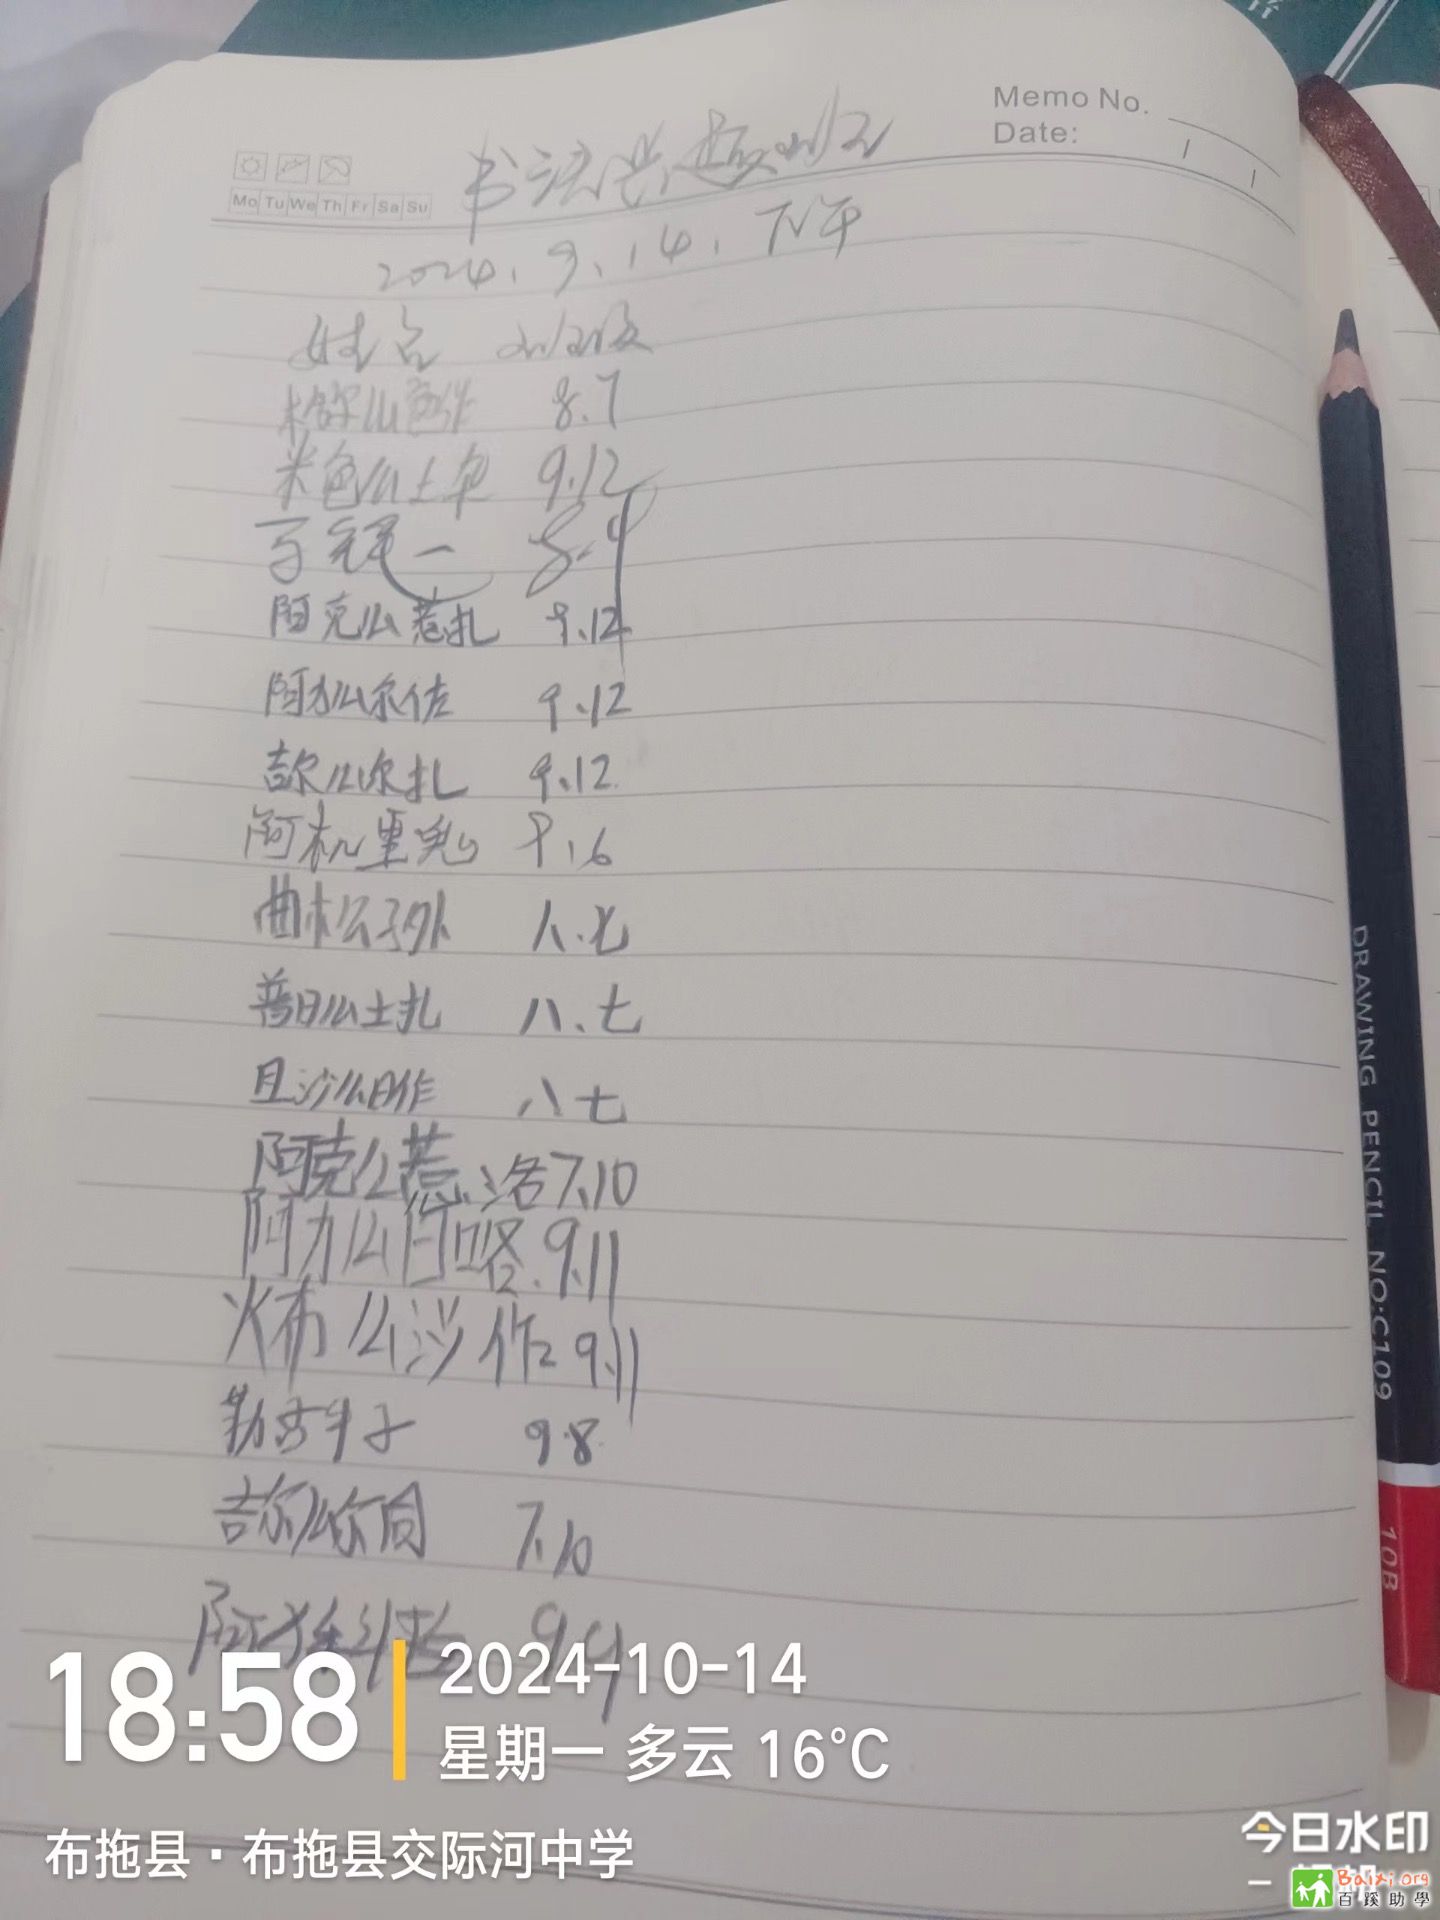 Memo No.
Date:
Mo Tu We Th Fr Sa Su
书法兴趣班
2024.9.14.下午
姓名 班级
8.7
米色么土 9.12
一 8.4
阿克么惹扎 9.12
阿力么尔佐 9.12
吉尔么尔扎 9.12
阿机里鬼 9.6
曲木么子外 八.七
普日么土扎 八.七
且沙么日作 八 七
阿克么惹洛 7.10
阿力么日咯 9.11
火布么沙作 9.11
勒古牛子 9.8
吉尔么尔 7.10
阿 9.9
DRAWING PENCIL NO:C109
10B
18:58
2024-10-14
星期一 多云 16°C
布拖县·布拖县交际河中学
今日水印
Baixi.org
百蹊助學